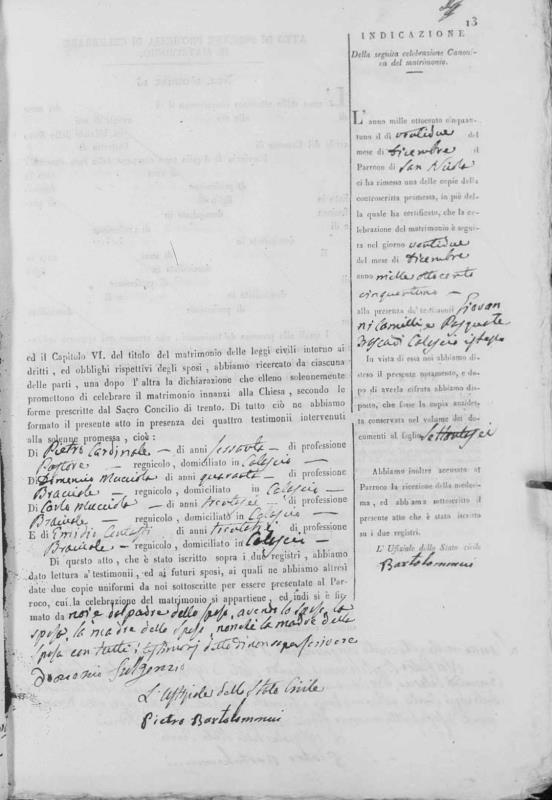 13
INDICAZIONE
Della seguita celebrazione Canoni-
ca del matrimonio.
L'anno mille ottocento cinquan-
tuno il dì ventidue del
mese di Dicembre il
Parroco di San Nicola
ci ha rimessa una delle copie della
controscritta promessa, in piè del-
la quale ha certificato, che la ce-
lebrazione del matrimonio è segui-
ta nel giorno ventidue
del mese di Dicembre
anno mille ottocento
cinquantuno
alla presenza de' testimonii Giovan
ni Camilli e Pasquale
di Calascio
In vista di essa noi abbiamo di-
steso il presente notamento, e do-
po di averla cifrata abbiamo dis-
posto, che fosse la copia anzidet-
ta conservata nel volume dei do-
cumenti al foglio Settantasei
Abbiamo inoltre accusato al
Parroco la ricezione della medesi-
ma, ed abbiamo sottoscritto il
presente atto che è stato iscritto
su i due registri.
L' Ufiziale dello Stato civile
Bartolommei
ed il Capitolo VI. del titolo del matrimonio delle leggi civili intorno ai
diritti, ed obblighi rispettivi degli sposi, abbiamo ricercato da ciascuna
delle parti, una dopo l'altra la dichiarazione che elleno solennemente
promettono di celebrare il matrimonio innanzi alla Chiesa, secondo le
forme prescritte dal Sacro Concilio di trento. Di tutto ciò ne abbiamo
formato il presente atto in presenza dei quattro testimonii intervenuti
alla solenne promessa, cioè:
Di Pietro Cardinale — di anni sessanta — di professione
Pastore — regnicolo, domiciliato in Calascio —
Di Domenico Mucciola di anni quaranta — di professione
Bracciale — regnicolo, domiciliato in Calascio —
Di Carlo Mucciola — di anni trentasei — di professione
Bracciale — regnicolo, domiciliato in Calascio —
E di Emidio di anni trentasei di professione
Bracciale — regnicolo, domiciliato in Calascio —
Di questo atto, che è stato iscritto sopra i due registri, abbiamo
dato lettura a' testimonii, ed ai futuri sposi, ai quali ne abbiamo altresì
date due copie uniformi da noi sottoscritte per essere presentate al Par-
roco, cui la celebrazione del matrimonio si appartiene, ed indi si è fir-
mato da noi e dal padre dello sposo, avendo lo sposo, la
sposa, la madre dello sposo, nonchè la madre della
sposa con tutti i testimonj detto di non saper scrivere
Fulgenzio
L' Uffiziale dello Stato Civile
Pietro Bartolommei